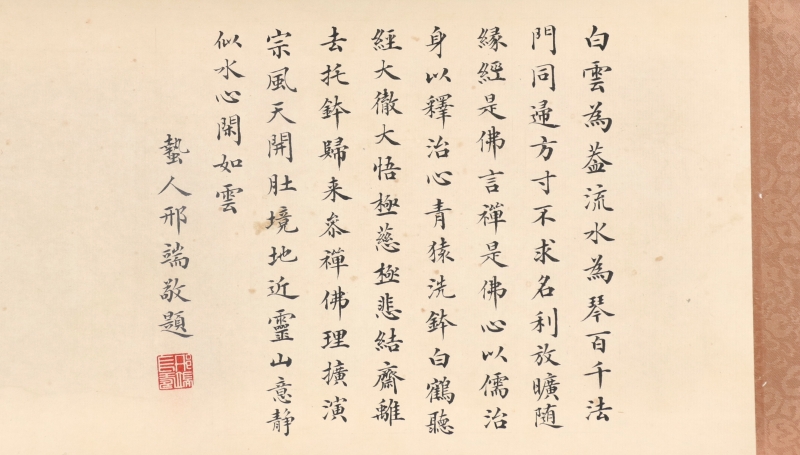 白雲為葢流水為琴百千法
門同歸方寸不求名利放曠随
緣經是佛言禪是佛心以儒治
身以釋治心青猿洗鉢白鶴聽
經大徹大悟極慈極悲結齋離
去托鉢歸来叅禪佛理擴演
宗風天開肚境地近靈山意静
似水心閑如雲
蟄人邢端敬題
邢端